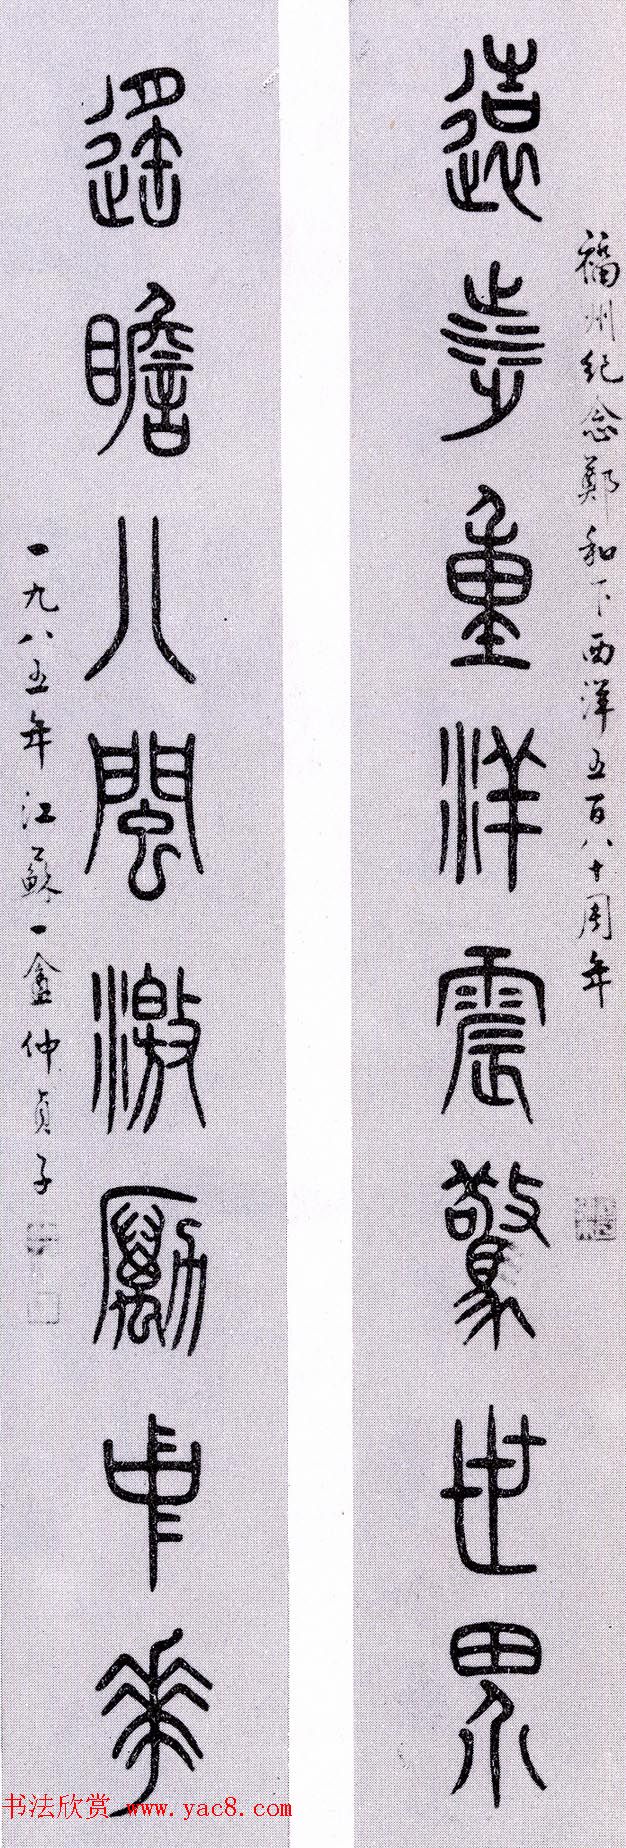 福州纪念鄭和下西洋五百八十周年
遠涉重洋震驚世界
遥瞻八閩激勵中華
一九八五年江蘇一盦仲貞子
书法欣赏 www.yac8.com